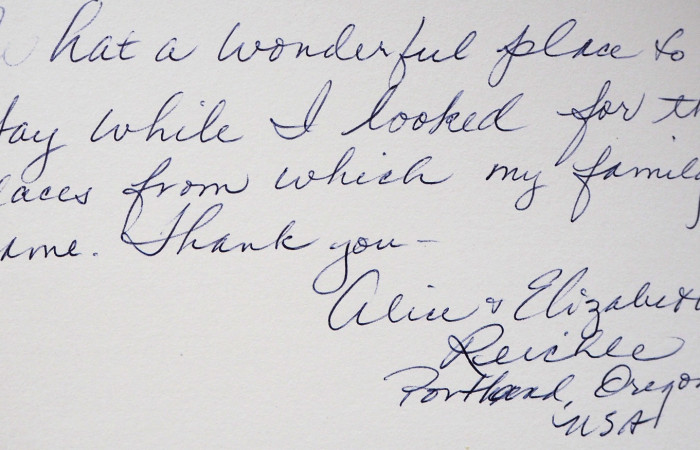 What a wonderful place to
tay while I looked for th
laces from which my family
ame. Thank you-
Alice & Elizabeth
Reichle
Portland, Oregon
USA